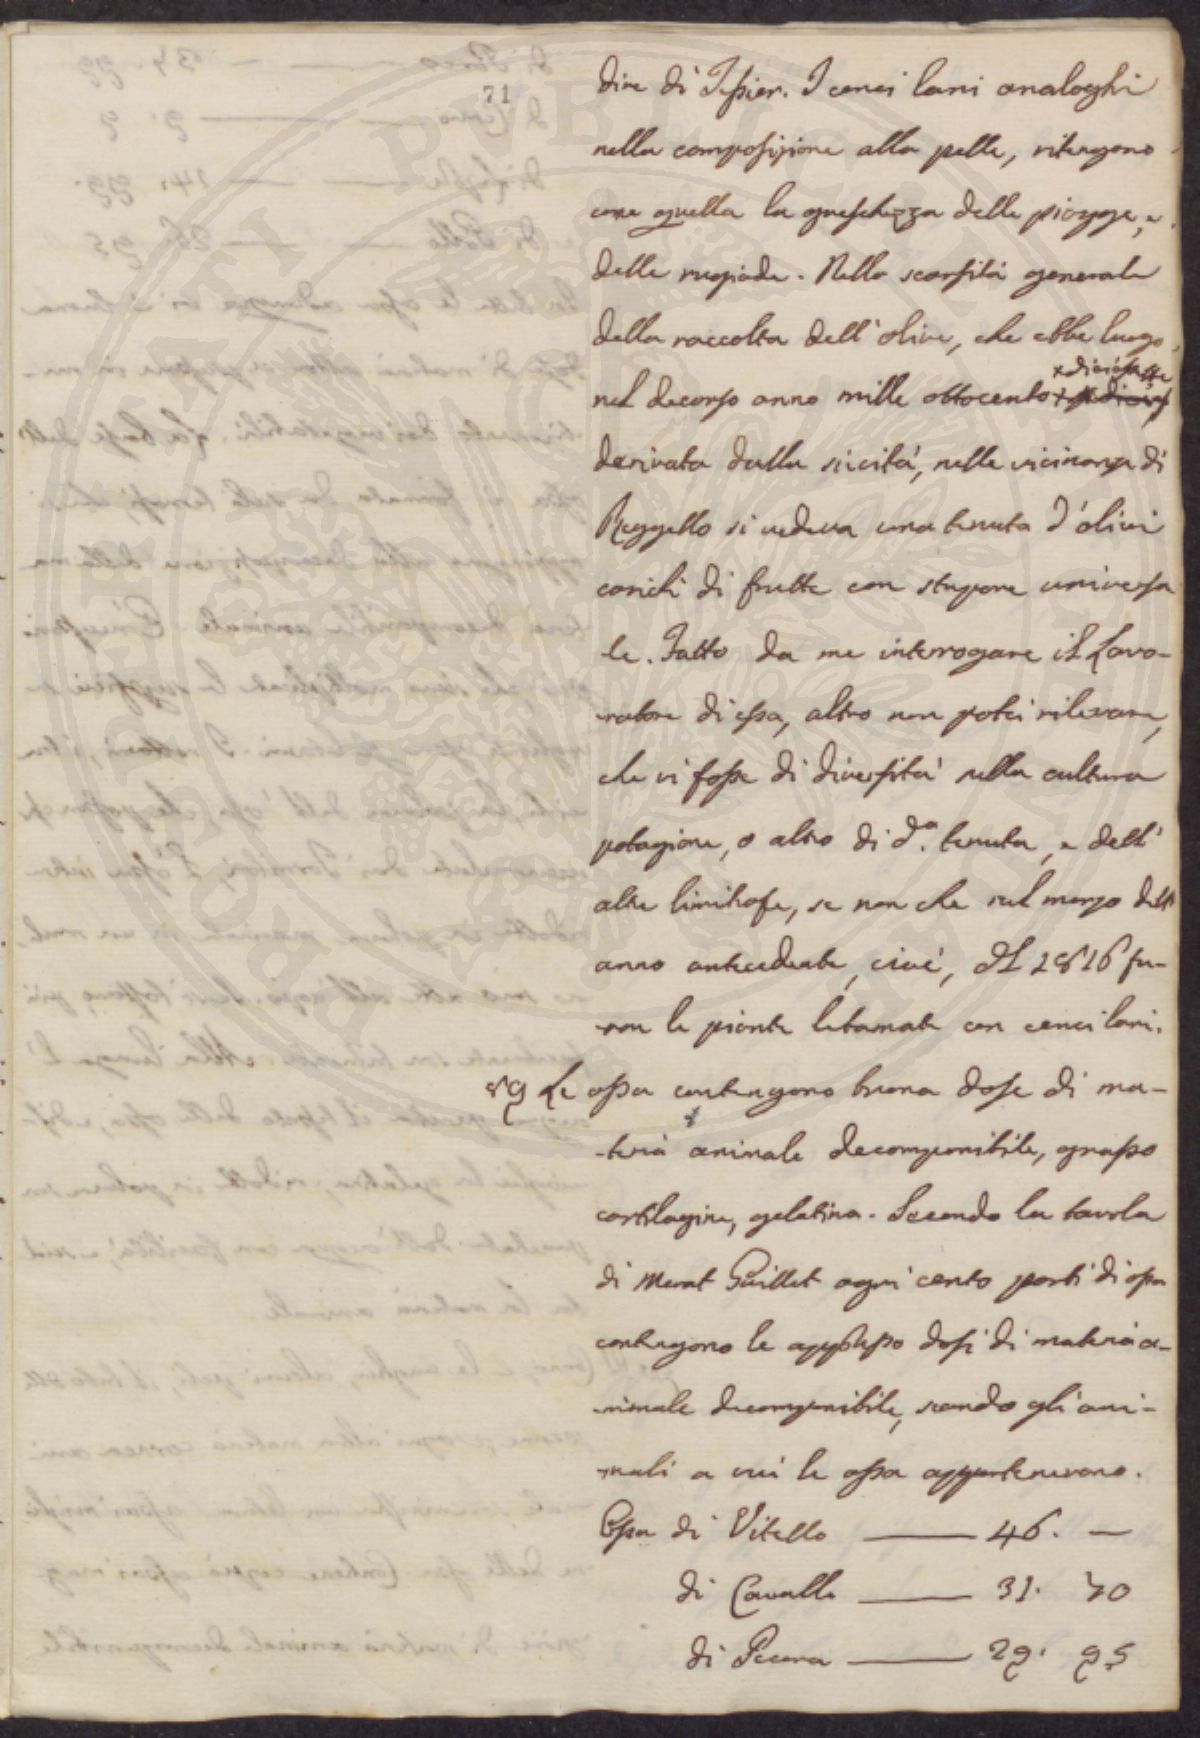 71
dire di Tessier. I cenci lani analoghi
nella composizione alla pelle, ritengono
come quella la freschezza delle piogge, e
delle rugiade. Nella scarsità generale
della raccolta dell'olive, che ebbe luogo
nel decorso anno mille ottocento + diciassette
derivata dalla siccità, nelle vicinanze di
Reggello si vedeva una tenuta d'olivi
carichi di frutte con stupore universa
le. Fatto da me interrogare il Lavo-
ratore di essa, altro non potei rilevare,
che vi fosse di diversità nella cultura
potagione, o altro di d.ª tenuta, e dell'
altre limitrofe, se non che nel marzo dell'
anno antecedente, cioè, del 1816 fu-
ron le piante letamate con cenci lani.
89 Le ossa contengono buona dose di ma-
-teria animale decomponibile, grasso
cartilagine, gelatina. Secondo la tavola
di Merat Guillet ogni cento parti di ossa
contengono le appresso dosi di materia a-
-nimale decomponibile, secondo gli ani-
-mali a cui le ossa appartenevano.
Ossa di Vitello —— 46. —
di Cavallo —— 31. 70
di Pecora —— 29. 95